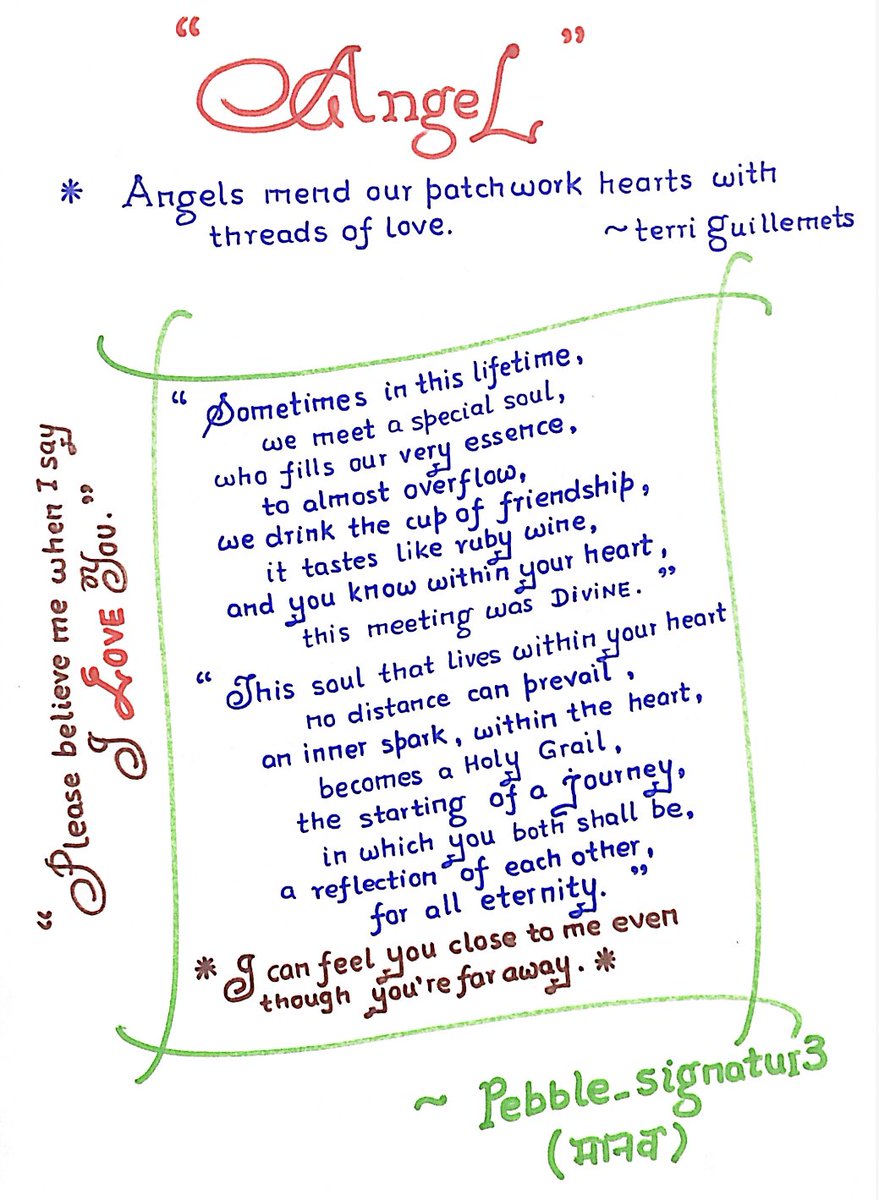 “ Angel ”
* Angels mend our patchwork hearts with
threads of love.
~ terri guillemets
“ Sometimes in this lifetime,
we meet a special soul,
who fills our very essence,
to almost overflow,
we drink the cup of friendship,
it tastes like ruby wine,
and you know within your heart,
this meeting was DIVINE. ”
“ This soul that lives within your heart
no distance can prevail,
an inner spark, within the heart,
becomes a Holy Grail,
the starting of a journey,
in which you both shall be,
a reflection of each other,
for all eternity. ”
* I can feel you close to me even
though you're far away. *
“ Please believe me when I say
I LOVE You. ”
~ Pebble_signatur3
(मानव)